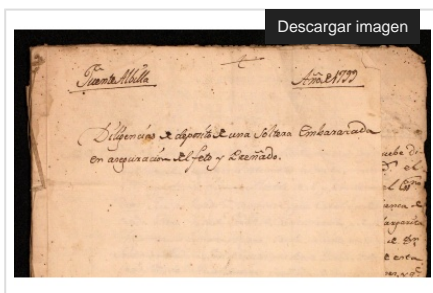 Descargar imagen
Fuente Albilla Año de 1799
Diligencias de deposito de una Soltera Embarazada
en aseguracion del feto y Preñado.